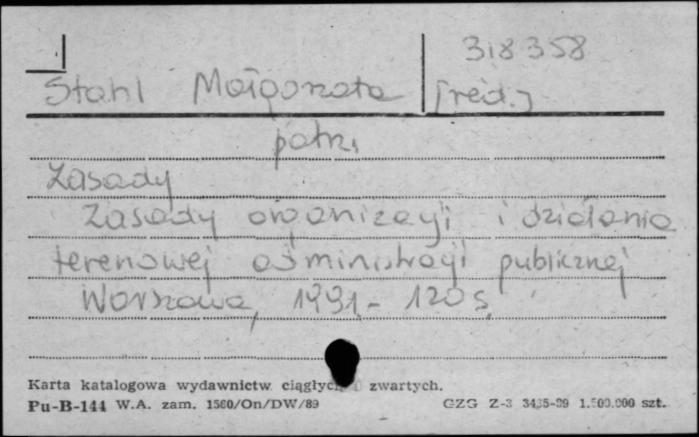 318358
Stahl Małgorzata [red.]
patrz
Zasady
Zasady organizacji i działania
terenowej administracji publicznej
Warszawa, 1991 - 120 s.
Karta katalogowa wydawnictw ciągłych zwartych.
Pu-B-144 W.A. zam. 1560/On/DW/89 GZG Z-3 3435-89 1.500.000 szt.